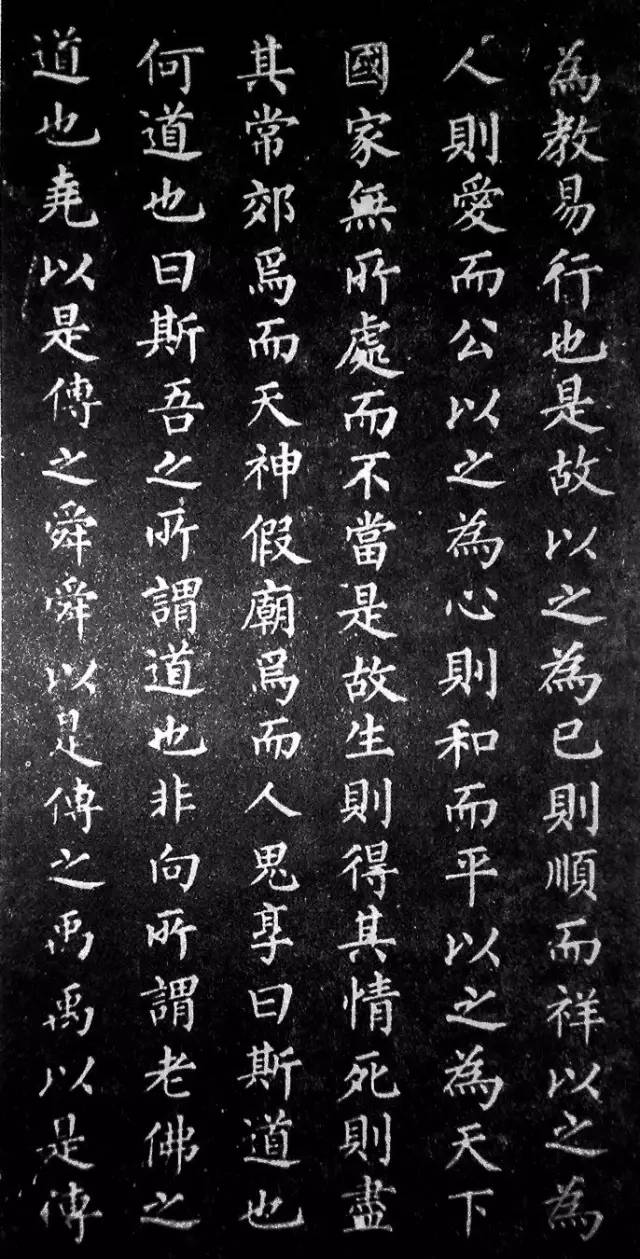 為教易行也是故以之為已則順而祥以之為
人則愛而公以之為心則和而平以之為天下
國家無所處而不當是故生則得其情死則盡
其常郊焉而天神假廟焉而人鬼享曰斯道也
何道也曰斯吾之所謂道也非向所謂老佛之
道也堯以是傳之舜舜以是傳之禹禹以是傳